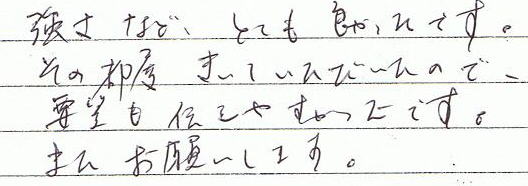 強さなど、とても良かったです。
その都度きいていただいたので、
要望も伝えやすかったです。
またお願いします。